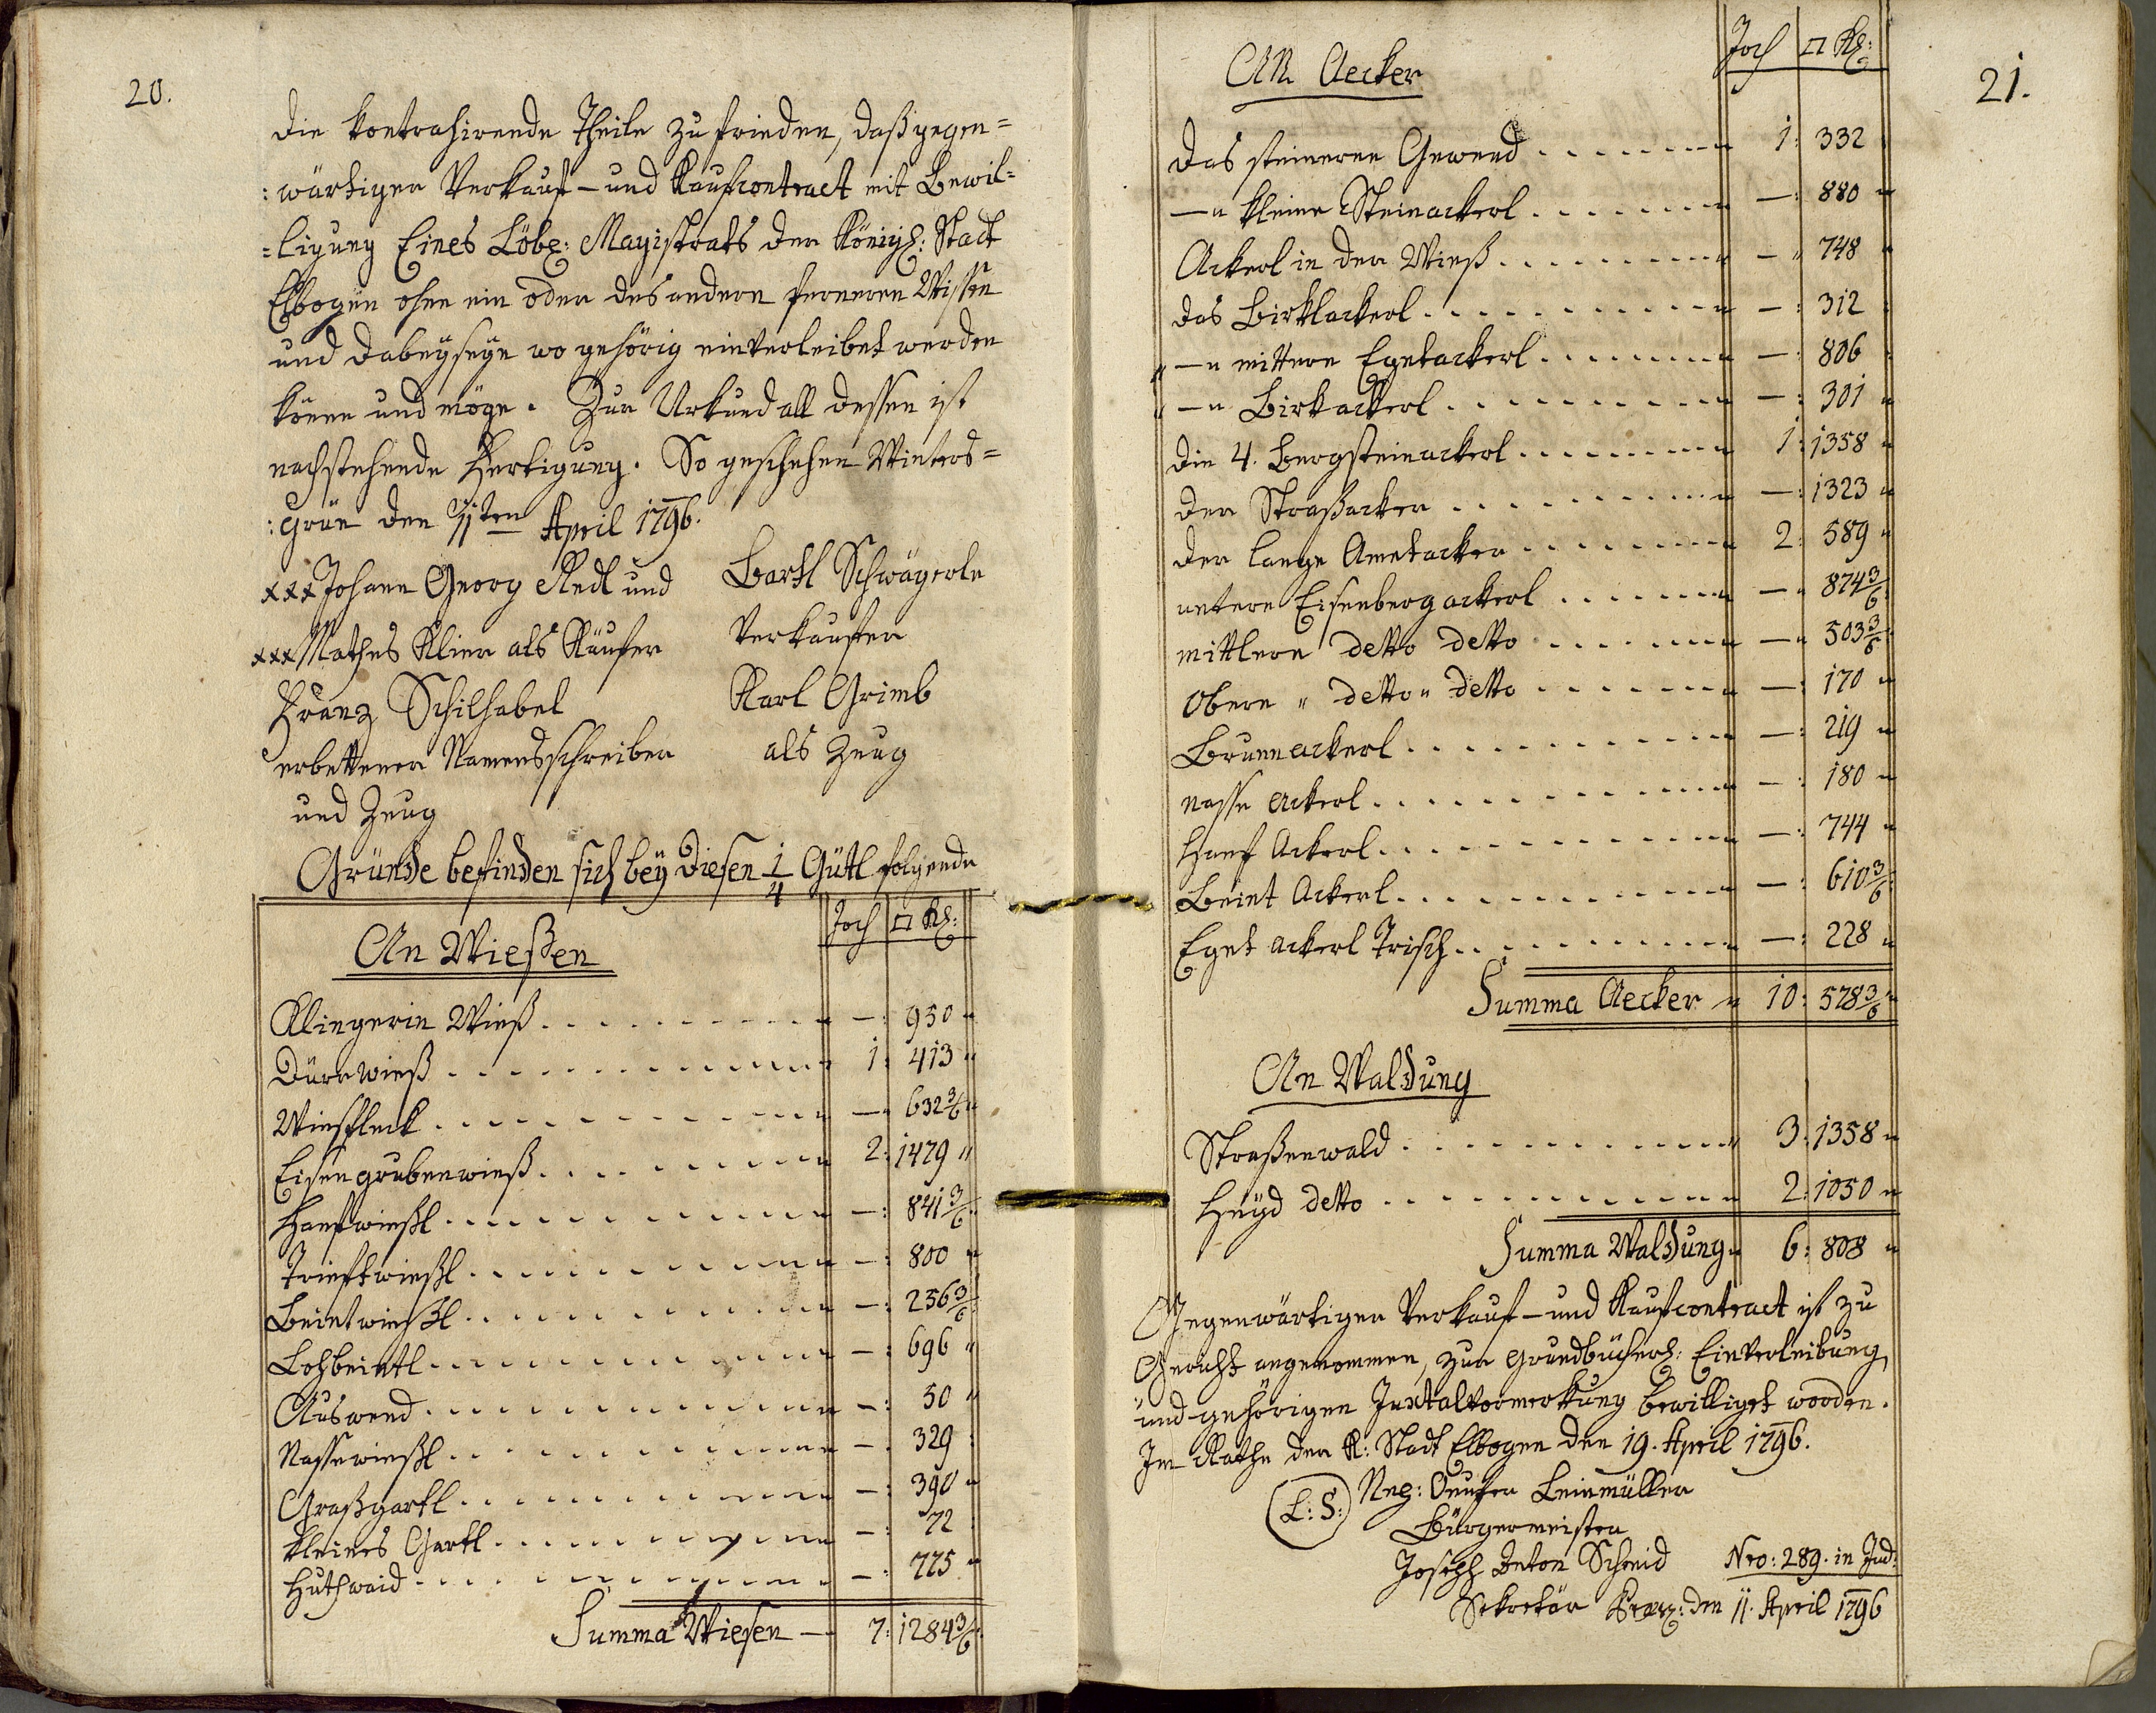 20.
die kontrahirende Theile zu frieden, daß gegen=
:wärtiger Verkauf- und Kaufcontract mit Bewil=
=ligung Eines Löbl: Magistrats der Königl: Stadt
Elbogen ohne ein oder des andern ferneren Wissen
und dabeyseyn wo gehörig einverleibet werden
könne und möge. Zur Urkund all dessen ist
nachstehende Fertigung. So geschehen Winters=
:Grün den 11ten April 1796.
xxx Johann Georg Redl und Bartl Schwägerle
xxx Mathes Klier als Käufer Verkaufer
Franz Schilhabel Karl Grimb
erbettener Namensschreiber als Zeug
und Zeug
Gründe befinden sich bey diesen 1/4 Gütl folgende
An Wießen Joch □ Kl:
Klingerin Wieß . . . . . . . . . . —: 950 "
Dürrwieß . . . . . . . . . . 1: 413 "
Wiesfleck . . . . . . . . . . —" 632 3/6 "
Eisengrubenwieß . . . . . . . . . . 2: 1479 "
Hanfwießl . . . . . . . . . . —: 841 3/6
Trieftwießl . . . . . . . . . . —: 800 "
Beintwießl . . . . . . . . . . —: 256 3/6
Lohbeintl . . . . . . . . . . —: 696 "
Auswend . . . . . . . . . . —: 50 "
Nassewießl . . . . . . . . . . —: 329 :
Graßgartl . . . . . . . . . . —: 390 "
kleines Gartl . . . . . . . . . . —: 72 :
Huthwaid . . . . . . . . . . —: 775 "
Summa Wiesen — 7: 1284 3/6
21.
An Aecker Joch □ Kl:
das steinerne Gewend . . . . . . . . 1: 332
—" kleine Steinackerl . . . . . . . . —: 880 "
Ackerl in der Wieß . . . . . . . . —" 748 "
das Birklackerl . . . . . . . . —: 312 :
" —" mittere Egetackerl . . . . . . . . —: 806 :
" —" Birkackerl . . . . . . . . —: 301 "
die 4. Bergsteinackerl . . . . . . . . 1: 1358 "
der Straßacker . . . . . . . . —: 1323 "
der lange Ametacker . . . . . . . . 2: 589 "
untere Eisenbergackerl . . . . . . . . —" 874 3/6
mittlere detto detto . . . . . . . . —" 503 3/6
obere " detto " detto . . . . . . . . —: 170 "
Brunnackerl . . . . . . . . —: 219 "
nasse Ackerl . . . . . . . . —: 180 "
Hanf Ackerl . . . . . . . . —: 744 "
Beint Ackerl . . . . . . . . —: 610 3/6
Eget ackerl Trisch . . . . . . . . —: 228 "
Summa Aecker " 10: 578 3/6 "
An Waldung
Straßenwald . . . . . . . . 3: 1358 "
Heyd detto . . . . . . . . 2: 1050 "
Summa Waldung " 6: 808 "
Gegenwärtiger Verkauf- und Kaufcontract ist zu
Gericht angenommen, zur Grundbücherl: Einverleibung,
und gehörigen Juxtalvormerkung bewilliget worden.
Im Rathe der K: Stadt Elbogen den 19. April 1796.
(L: S:) Leinmüller
Bürgermeister
Joseph Anton Schmid Nro: 289. in Jud:
Sekretär den 11. April 1796